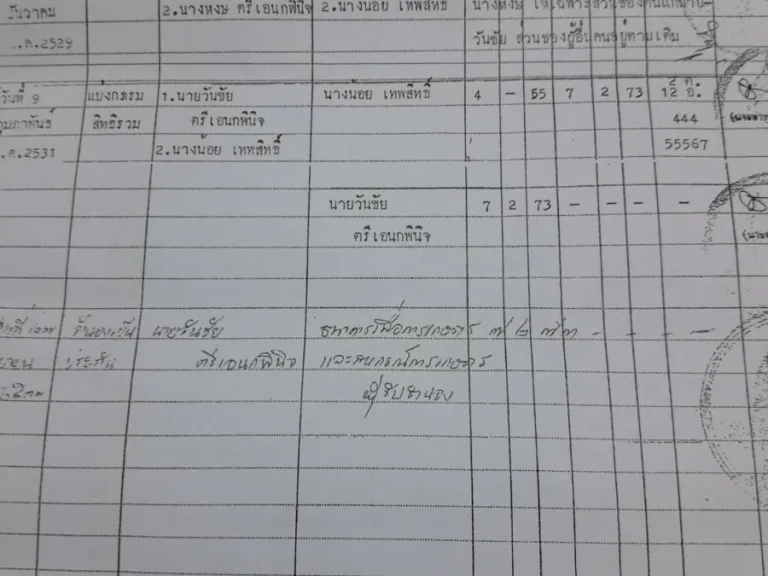 ธันวาคม 2.นางหงษ์ ศรีเอนกพินิจ 2.นางน้อย เทพสิทธิ์
.ศ.2529 วันชัย ส่วนของผู้อื่นคงอยู่ตามเดิม
วันที่ 9 แบ่งกรรม 1.นายวันชัย นางน้อย เทพสิทธิ์ 4 - 55 7 2 73 12 อ.
กุมภาพันธ์ สิทธิรวม ศรีเอนกพินิจ 444
.ศ.2531 2.นางน้อย เทพสิทธิ์ 55567
นายวันชัย 7 2 73 - - - -
ศรีเอนกพินิจ
จำนองเป็น นายวันชัย ธนาคารเพื่อการเกษตร ๗ ๒ ๗๓ - - - -
ประกัน ศรีเอนกพินิจ และสหกรณ์การเกษตร
ผู้รับจำนอง